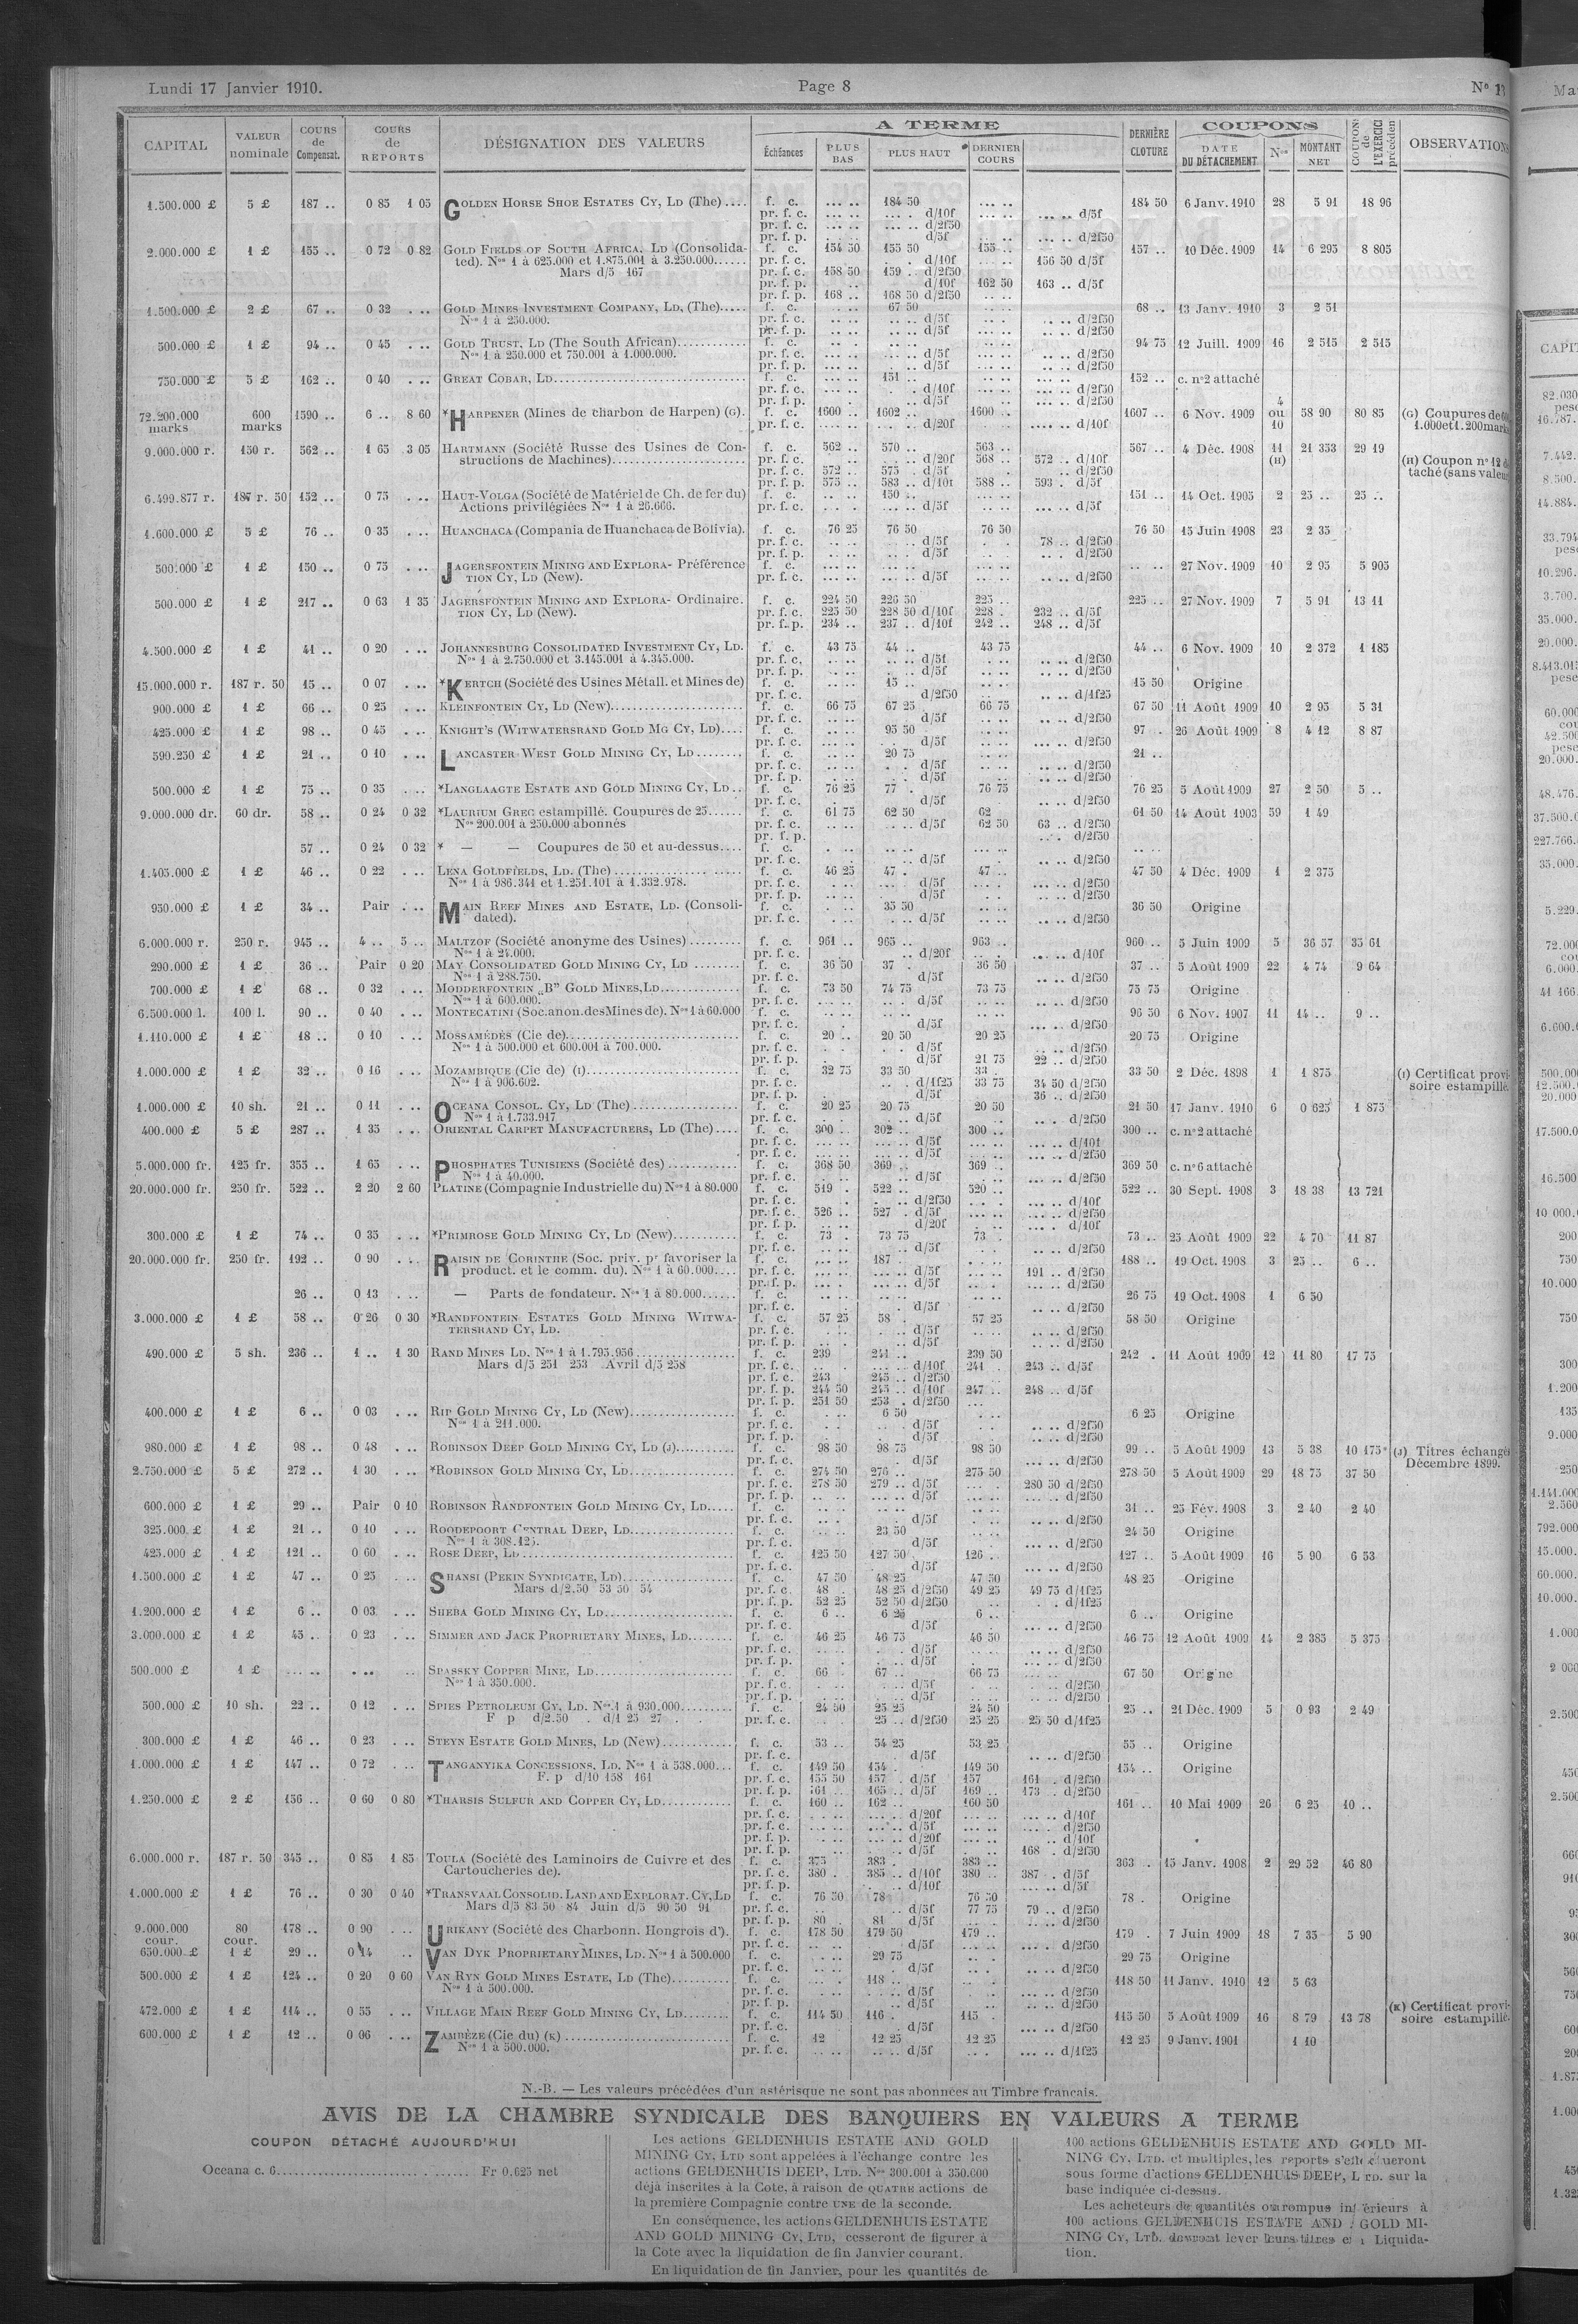 Lundi 17 Janvier 1910. Page 8 Nº 13
CAPITAL VALEUR nominale COURS de Compensat. COURS de REPORTS DÉSIGNATION DES VALEURS A TERME Échéances PLUS BAS PLUS HAUT DERNIER COURS DERNIÈRE CLOTURE COUPONS DATE DU DÉTACHEMENT Nos MONTANT NET COUPONS de L'EXERCICE précédent OBSERVATIONS
1.500.000 £ 5 £ 187 .. 0 85 1 05 GOLDEN HORSE SHOE ESTATES CY, LD (The).... f. c. .... .. 184 50 ... .. 184 50 6 Janv. 1910 28 5 91 18 96
pr. f. c. ... .. d/10f ... .. d/5f
pr. f. c. ... .. d/2f50
pr. f. p. d/5f ... .. d/2f50
2.000.000 £ 1 £ 155 .. 0 72 0 82 GOLD FIELDS OF SOUTH AFRICA, LD (Consolida- f. c. 154 50 155 50 155 .. 157 .. 10 Déc. 1909 14 6 295 8 805
ted). Nos 1 à 625.000 et 1.875.001 à 3.250.000...... pr. f. c. d/10f 156 50 d/5f
Mars d/5 167 pr. f. c. 158 50 159 .. d/2f50
pr. f. p. d/10f 162 50 163 .. d/5f
pr. f. p. 168 .. 168 50 d/2f50
1.500.000 £ 2 £ 67 .. 0 32 . .. GOLD MINES INVESTMENT COMPANY, LD, (The)..... f. c. 67 50 68 .. 13 Janv. 1910 3 2 51
Nos 1 à 250.000. pr. f. c. .. .. d/5f .. .. d/2f50
pr. f. p. .. .. d/5f .. .. d/2f50
500.000 £ 1 £ 94 .. 0 45 . .. GOLD TRUST, LD (The South African)............ f. c. 94 75 12 Juill. 1909 16 2 515 2 515
Nos 1 à 250.000 et 750.001 à 1.000.000. pr. f. c. .. .. d/5f .. .. d/2f50
pr. f. p. .. .. d/5f .. .. d/2f50
750.000 £ 5 £ 162 .. 0 40 . .. GREAT COBAR, LD................ f. c. 151 .. 152 .. c. nº2 attaché
pr. f. c. d/10f ... .. d/2f50
pr. f. p. d/5f ... .. d/2f50
72.200.000 marks 600 marks 1590 .. 6 .. 8 60 *HARPENER (Mines de charbon de Harpen) (G). f. c. 1600 .. 1602 .. 1600 .. 1607 .. 6 Nov. 1909 4 ou 10 58 90 80 85 (G) Coupures de
pr. f. c. d/20f .... .. d/10f 1.000et1.200marks
9.000.000 r. 150 r. 562 .. 1 65 3 05 HARTMANN (Société Russe des Usines de Con- f. c. 562 .. 570 .. 563 .. 567 .. 4 Déc. 1908 11 (H) 21 353 29 19
structions de Machines)................ pr. f. c. d/20f 568 .. 572 .. d/10f (H) Coupon nº 12
pr. f. c. 572 .. 575 .. d/5f .. d/2f50 taché (sans valeur
pr. f. p. 575 .. 583 .. d/10f 588 .. 593 . d/5f
6.499.877 r. 187 r. 50 152 .. 0 75 . .. HAUT-VOLGA (Société de Matériel de Ch. de fer du) f. c. 150 .. 151 .. 14 Oct. 1905 2 25 .. 25 ..
Actions privilégiées Nos 1 à 26.666. pr. f. c. ... .. d/5f ... .. d/5f
1.600.000 £ 5 £ 76 .. 0 35 . .. HUANCHACA (Compania de Huanchaca de Bolivia). f. c. 76 25 76 50 76 50 76 50 15 Juin 1908 23 2 35
pr. f. c. .. .. d/5f 78 .. d/2f50
pr. f. p. .. .. d/5f .. . d/2f50
500.000 £ 1 £ 150 .. 0 75 . .. JAGERSFONTEIN MINING AND EXPLORA- Préférence f. c. .. .. 27 Nov. 1909 10 2 95 5 905
TION CY, LD (New). pr. f. c. ... .. d/5f ... .. d/2f50
500.000 £ 1 £ 217 .. 0 63 1 35 JAGERSFONTEIN MINING AND EXPLORA- Ordinaire. f. c. 224 50 226 50 225 .. 225 .. 27 Nov. 1909 7 5 91 13 11
TION CY, LD (New). pr. f. c. 225 50 228 50 d/10f 228 . 232 .. d/5f
pr. f. p. 234 .. 237 .. d/10f 242 .. 248 .. d/5f
4.500.000 £ 1 £ 41 .. 0 20 . .. JOHANNESBURG CONSOLIDATED INVESTMENT CY, LD. f. c. 43 75 44 .. 43 75 44 .. 6 Nov. 1909 10 2 372 1 185
Nos 1 à 2.750.000 et 3.145.001 à 4.345.000. pr. f. c. .. .. d/5f .. .. d/2f50
pr. f. p. .. .. d/5f .. .. d/2f50
15.000.000 r. 187 r. 50 15 .. 0 07 . .. *KERTCH (Société des Usines Métall. et Mines de) f. c. 15 .. 15 50 Origine
pr. f. c. d/2f50 .. .. d/1f25
900.000 £ 1 £ 66 .. 0 25 . .. KLEINFONTEIN CY, LD (New)................ f. c. 66 75 67 25 66 75 67 50 11 Août 1909 10 2 95 5 31
pr. f. c. d/5f .. .. d/2f50
425.000 £ 1 £ 98 .. 0 45 . .. KNIGHT'S (WITWATERSRAND GOLD MG CY, LD).... f. c. 95 50 97 .. 26 Août 1909 8 4 12 8 87
pr. f. c. d/5f ... .. d/2f50
590.250 £ 1 £ 21 .. 0 10 . .. LANCASTER WEST GOLD MINING CY, LD ........ f. c. 20 75 21 ..
pr. f. c. d/5f .. .. d/2f50
pr. f. p. d/5f .. .. d/2f50
500.000 £ 1 £ 75 .. 0 35 . .. *LANGLAAGTE ESTATE AND GOLD MINING CY, LD .. f. c. 76 25 77 . 76 75 76 25 5 Août 1909 27 2 50 5 ..
pr. f. c. d/5f .. .. d/2f50
9.000.000 dr. 60 dr. 58 .. 0 24 0 32 *LAURIUM GREC estampillé. Coupures de 25...... f. c. 61 75 62 50 62 61 50 14 Août 1903 59 1 49
Nos 200.001 à 250.000 abonnés pr. f. c. .. .. d/5f 62 50 63 .. d/2f50
pr. f. p. d/2f50
57 .. 0 24 0 32 * — — Coupures de 50 et au-dessus.... f. c. .. ..
pr. f. c. .. d/5f .. .. d/2f50
1.405.000 £ 1 £ 46 .. 0 22 . .. LENA GOLDFIELDS, LD. (The) ................ f. c. 46 25 47 . 47 .. 47 50 4 Déc. 1909 1 2 375
Nos 1 à 986.341 et 1.251.101 à 1.332.978. pr. f. c. ... .. d/5f ... .. d/2f50
pr. f. p. d/5f ... .. d/2f50
950.000 £ 1 £ 34 .. Pair . .. MAIN REEF MINES AND ESTATE, LD. (Consoli- f. c. 35 50 36 50 Origine
dated). pr. f. c. .. .. d/5f .. .. d/2f50
6.000.000 r. 250 r. 945 .. 4 .. 5 .. MALTZOF (Société anonyme des Usines) ......... f. c. 961 .. 965 .. 963 .. 960 .. 5 Juin 1909 5 36 57 35 61
Nos 1 à 24.000. pr. f. c. d/20f ... .. d/10f
290.000 £ 1 £ 36 .. Pair 0 20 MAY CONSOLIDATED GOLD MINING CY, LD ........ f. c. 36 50 37 . 36 50 37 .. 5 Août 1909 22 4 74 9 64
Nos 1 à 288.750. pr. f. c. d/5f .. .. d/2f50
700.000 £ 1 £ 68 .. 0 32 . .. MODDERFONTEIN „B" GOLD MINES,LD............ f. c. 73 50 74 75 73 75 75 75 Origine
Nos 1 à 600.000. pr. f. c. .. .. d/5f ... .. d/2f50
6.500.000 l. 100 l. 90 .. 0 40 . .. MONTECATINI (Soc.anon.desMines de). Nos 1 à 60.000 f. c. 96 50 6 Nov. 1907 11 14 .. 9 ..
pr. f. c. d/5f ... .. d/2f50
1.110.000 £ 1 £ 18 .. 0 10 . .. MOSSAMÉDÈS (Cie de)................ f. c. 20 .. 20 50 20 25 20 75 Origine
Nos 1 à 500.000 et 600.001 à 700.000. pr. f. c. d/5f .. .. d/2f50
pr. f. p. d/5f 21 75 22 .. d/2f50
1.000.000 £ 1 £ 32 .. 0 16 . .. MOZAMBIQUE (Cie de) (I)................ f. c. 32 75 33 50 33 .. 33 50 2 Déc. 1898 1 1 875 (I) Certificat provi-
Nos 1 à 906.602. pr. f. c. .. . d/1f25 33 75 34 50 d/2f50 soire estampillé.
pr. f. p. d/5f 36 .. d/2f50
1.000.000 £ 10 sh. 21 .. 0 11 . .. OCEANA CONSOL. CY, LD (The) ................ f. c. 20 25 20 75 20 50 21 50 17 Janv. 1910 6 0 625 1 875
Nos 1 à 1.733.917 pr. f. c. d/5f .. . d/2f50
400.000 £ 5 £ 287 .. 1 35 . .. ORIENTAL CARPET MANUFACTURERS, LD (The).... f. c. 300 .. 302 .. 300 .. 300 .. c. nº2 attaché
pr. f. c. ... .. d/5f ... .. d/10f
pr. f. c. ... .. d/5f ... .. d/2f50
5.000.000 fr. 125 fr. 355 .. 1 65 . .. PHOSPHATES TUNISIENS (Société des) ............ f. c. 368 50 369 .. 369 .. 369 50 c. nº6 attaché
Nos 1 à 40.000. pr. f. c. .. d/5f ... .. d/2f50
20.000.000 fr. 250 fr. 522 .. 2 20 2 60 PLATINE (Compagnie Industrielle du) Nos 1 à 80.000 f. c. 519 . 522 .. 520 .. 522 .. 30 Sept. 1908 3 18 38 13 721
pr. f. c. .. d/2f50 ... .. d/10f
pr. f. c. 526 .. 527 . d/5f ... .. d/2f50
pr. f. p. d/20f ... . d/10f
300.000 £ 1 £ 74 .. 0 35 . .. *PRIMROSE GOLD MINING CY, LD (New)............ f. c. 73 . 73 75 73 . 73 .. 25 Août 1909 22 4 70 11 87
pr. f. c. .. d/5f .. .. d/2f50
20.000.000 fr. 250 fr. 192 .. 0 90 . .. RAISIN DE CORINTHE (Soc. priv. pr favoriser la f. c. 187 . 188 .. 19 Oct. 1908 3 25 .. 6 ..
product. et le comm. du). Nos 1 à 60.000.... pr. f. c. ... .. d/5f 191 .. d/2f50
pr. f. p. ... .. d/5f ... .. d/2f50
26 .. 0 13 . ... — Parts de fondateur. Nos 1 à 80.000...... f. c. 26 75 19 Oct. 1908 1 6 50
pr. f. c. . d/5f .. .. d/2f50
3.000.000 £ 1 £ 58 .. 0 26 0 30 *RANDFONTEIN ESTATES GOLD MINING WITWA- f. c. 57 25 58 . 57 25 58 50 Origine
TERSRAND CY, LD. pr. f. c. .. d/5f .. .. d/2f50
pr. f. p. .. d/5f .. .. d/2f50
490.000 £ 5 sh. 236 .. 1 .. 1 30 RAND MINES LD. Nos 1 à 1.795.956................ f. c. 239 241 .. 239 50 242 . 11 Août 1909 12 11 80 17 75
Mars d/5 251 253 Avril d/5 258 pr. f. c. ... .. d/10f 241 . 243 .. d/5f
pr. f. c. 243 245 .. d/2f50
pr. f. p. 244 50 245 .. d/10f 247 .. 248 .. d/5f
pr. f. p. 251 50 253 . d/2f50 ...
400.000 £ 1 £ 6 .. 0 03 . .. RIP GOLD MINING CY, LD (New)................ f. c. 6 50 6 25 Origine
Nos 1 à 211.000. pr. f. c. d/5f .. .. d/2f50
pr. f. p. d/5f .. .. d/2f50
980.000 £ 1 £ 98 .. 0 48 . .. ROBINSON DEEP GOLD MINING CY, LD (J).......... f. c. 98 50 98 75 98 50 99 .. 5 Août 1909 13 5 38 10 175 (J) Titres échangés
pr. f. c. . d/5f ... .. d/2f50 Décembre 1899.
2.750.000 £ 5 £ 272 .. 1 30 . .. *ROBINSON GOLD MINING CY, LD................ f. c. 274 50 276 .. 275 50 278 50 5 Août 1909 29 18 75 37 50
pr. f. c. 278 50 279 .. d/5f 280 50 d/2f50
pr. f. p. ... .. d/5f ... .. d/2f50
600.000 £ 1 £ 29 .. Pair 0 10 ROBINSON RANDFONTEIN GOLD MINING CY, LD..... f. c. 31 .. 25 Fév. 1908 3 2 40 2 40
pr. f. c. . d/5f .. .. d/2f50
325.000 £ 1 £ 21 .. 0 10 . .. ROODEPOORT CENTRAL DEEP, LD................ f. c. 23 50 24 50 Origine
Nos 1 à 308.125. pr. f. c. d/5f ... .. d/2f50
425.000 £ 1 £ 121 .. 0 60 . .. ROSE DEEP, LD................ f. c. 125 50 127 50 126 . 127 .. 5 Août 1909 16 5 90 6 53
pr. f. c. d/5f ... .. d/2f50
1.500.000 £ 1 £ 47 .. 0 25 . .. SHANSI (PEKIN SYNDICATE, LD)................ f. c. 47 50 48 25 47 50 48 25 Origine
Mars d/2.50 53 50 54 pr. f. c. 48 . 48 25 d/2f50 49 25 49 75 d/1f25
pr. f. p. 52 25 52 50 d/2f50 . . d/1f25
1.200.000 £ 1 £ 6 .. 0 03 . .. SHEBA GOLD MINING CY, LD................ f. c. 6 .. 6 25 6 .. 6 .. Origine
pr. f. c. d/5f ... .. d/2f50
3.000.000 £ 1 £ 45 .. 0 23 . .. SIMMER AND JACK PROPRIETARY MINES, LD........ f. c. 46 25 46 75 46 50 46 75 12 Août 1909 14 2 385 5 375
pr. f. c. d/5f .. .. d/2f50
pr. f. p. d/5f .. .. d/2f50
500.000 £ 1 £ ... .. . .. .. SPASSKY COPPER MINE, LD................ f. c. 66 . 67 .. 66 75 67 50 Origine
Nos 1 à 350.000. pr. f. c. .. d/5f .. .. d/2f50
pr. f. p. .. d/5f .. .. d/2f50
500.000 £ 10 sh. 22 .. 0 12 . .. SPIES PETROLEUM CY, LD. Nos 1 à 930.000......... f. c. 24 50 25 25 24 50 25 .. 21 Déc. 1909 5 0 93 2 49
F p d/2.50 . d/1 25 27 . . pr. f. c. 25 .. d/2f50 25 25 25 50 d/1f25
300.000 £ 1 £ 46 .. 0 23 . .. STEYN ESTATE GOLD MINES, LD (New)............ f. c. 53 .. 54 25 53 25 55 .. Origine
pr. f. c. . d/5f .. .. d/2f50
1.000.000 £ 1 £ 147 .. 0 72 . .. TANGANYIKA CONCESSIONS, LD. Nos 1 à 538.000... f. c. 149 50 154 . 149 50 154 .. Origine
F. p d/10 158 161 pr. f. c. 155 50 157 . d/5f 157 161 . d/2f50
pr. f. p. 161 .. 165 .. d/5f 169 .. 173 .. d/2f50
1.250.000 £ 2 £ 156 .. 0 60 0 80 *THARSIS SULFUR AND COPPER CY, LD............ f. c. 160 .. 162 .. 160 50 161 .. 10 Mai 1909 26 6 25 10 ..
pr. f. c. ... .. d/20f ... .. d/10f
pr. f. c. ... .. d/5f ... .. d/2f50
pr. f. p. ... .. d/20f .. d/10f
pr. f. p. ... .. d/5f 168 . d/2f50
6.000.000 r. 187 r. 50 345 .. 0 85 1 85 TOULA (Société des Laminoirs de Cuivre et des f. c. 375 383 . 383 .. 363 . 15 Janv. 1908 2 29 52 46 80
Cartoucheries de). pr. f. c. 380 . 385 .. d/10f 380 .. 387 . d/5f
pr. f. p. . d/10f ... .. d/5f
1.000.000 £ 1 £ 76 .. 0 30 0 40 *TRANSVAAL CONSOLID. LAND AND EXPLORAT. CY, LD f. c. 76 50 78 76 50 78 . Origine
Mars d/5 83 50 84 Juin d/5 90 50 91 pr. f. c. .. d/5f 77 75 79 .. d/2f50
pr. f. p. 80 . 81 d/5f .. .. d/2f50
9.000.000 cour. 80 cour. 178 .. 0 90 . .. URIKANY (Société des Charbonn. Hongrois d'). f. c. 178 50 179 50 179 .. 179 . 7 Juin 1909 18 7 35 5 90
pr. f. c. .. d/5f ... . d/2f50
650.000 £ 1 £ 29 .. 0 14 .. VAN DYK PROPRIETARY MINES, LD. Nos 1 à 500.000 f. c. 29 75 29 75 Origine
pr. f. c. . d/5f .. .. d/2f50
500.000 £ 1 £ 124 .. 0 20 0 60 VAN RYN GOLD MINES ESTATE, LD (The).......... f. c. 118 .. 118 50 11 Janv. 1910 12 5 63
Nos 1 à 500.000. pr. f. c. .. d/5f ... .. d/2f50
pr. f. p. .. d/5f ... .. d/2f50
472.000 £ 1 £ 114 .. 0 55 . .. VILLAGE MAIN REEF GOLD MINING CY, LD........ f. c. 114 50 116 . 115 . 115 50 5 Août 1909 16 8 79 13 78 (K) Certificat provi-
pr. f. c. . d/5f ... .. d/2f50 soire estampillé.
600.000 £ 1 £ 12 .. 0 06 . .. ZAMBÈZE (Cie du) (K) ................ f. c. 12 12 25 12 25 12 25 9 Janv. 1901 1 10
Nos 1 à 500.000. pr. f. c. .. .. d/5f ... .. d/1f25
N.-B. — Les valeurs précédées d'un astérisque ne sont pas abonnées au Timbre francais.
AVIS DE LA CHAMBRE SYNDICALE DES BANQUIERS EN VALEURS A TERME
COUPON DÉTACHÉ AUJOURD'HUI
Oceana c. 6................ Fr 0.625 net
Les actions GELDENHUIS ESTATE AND GOLD
MINING CY, LTD sont appelées à l'échange contre les
actions GELDENHUIS DEEP, LTD. Nos 300.001 à 350.000
déjà inscrites à la Cote, à raison de QUATRE actions de
la première Compagnie contre UNE de la seconde.
En conséquence, les actions GELDENHUIS ESTATE
AND GOLD MINING CY, LTD, cesseront de figurer à
la Cote avec la liquidation de fin Janvier courant.
En liquidation de fin Janvier, pour les quantités de
100 actions GELDENHUIS ESTATE AND GOLD MI-
NING CY, LTD. et multiples, les reports s'effectueront
sous forme d'actions GELDENHUIS DEEP, LTD. sur la
base indiquée ci-dessus.
Les acheteurs de quantités ou rompus inférieurs à
100 actions GELDENHUIS ESTATE AND GOLD MI-
NING CY, LTD. devront lever leurs titres en Liquida-
tion.